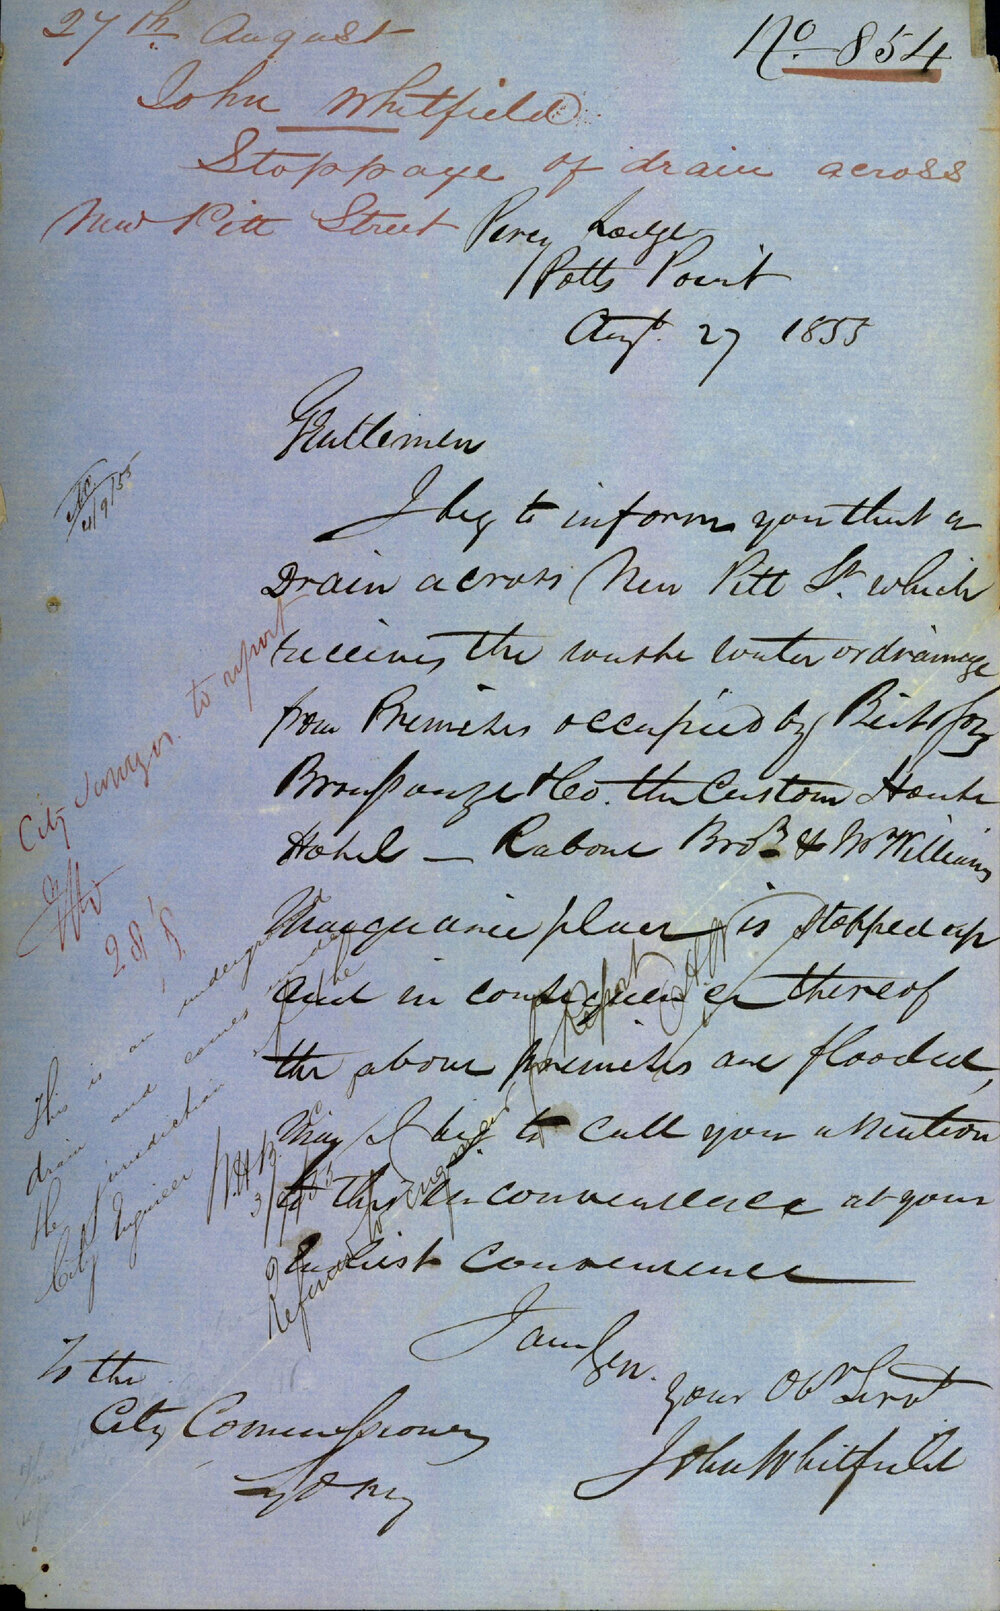 27th August
No 854
John Whitfield
Stoppage of drain across
New Pitt Street
Percy Lodge
Potts Point
Augt. 27 1855
Gentlemen
I beg to inform you that a
Drain across New Pitt St. which
receives the waste water or drainage
from Premises occupied by
& Co. the Custom House
Hotel — Rabone Bros. & Mr Williams
Macquarie place is stopped up
and in consequence thereof
the above premises are flooded,
May I beg to call your attention
to this inconvenience at your
Earliest convenience
I am Gen.
your Obt Servt
John Whitfield
To the
City Commissioners
Sydney
4/9/55
City Surveyor to report
28/8
This is an undergrd
drain and comes under
the jurisdiction of the
City Engineer
W.H.B.
3/9/55
Referred to Engineer for Report